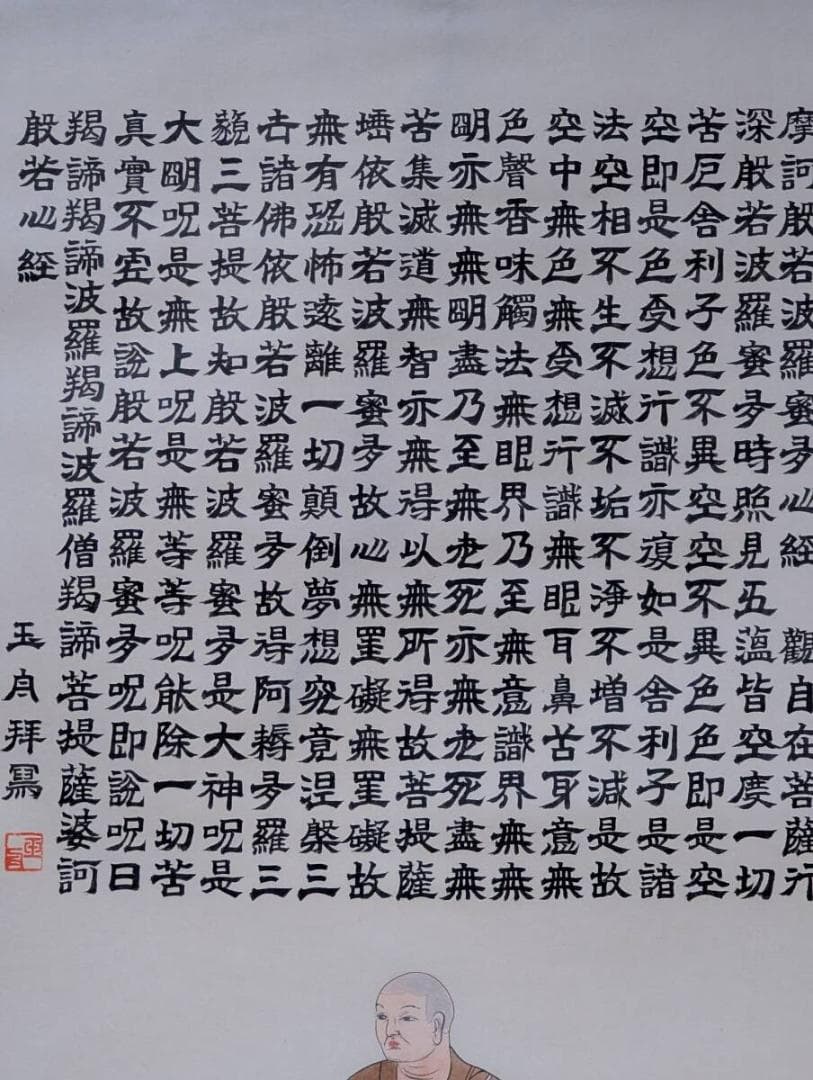 摩訶般若波羅蜜多心經 觀自在菩薩行
深般若波羅蜜多時照見五蘊皆空度一切
苦厄舍利子色不異空空不異色色即是空
空即是色受想行識亦復如是舍利子是諸
法空相不生不滅不垢不淨不增不減是故
空中無色無受想行識無眼耳鼻舌身意無
色聲香味觸法無眼界乃至無意識界無無
明亦無無明盡乃至無老死亦無老死盡無
苦集滅道無智亦無得以無所得故菩提薩
埵依般若波羅蜜多故心無罣礙無罣礙故
無有恐怖遠離一切顛倒夢想究竟涅槃三
世諸佛依般若波羅蜜多故得阿耨多羅三
藐三菩提故知般若波羅蜜多是大神呪是
大明呪是無上呪是無等等呪能除一切苦
真實不虛故說般若波羅蜜多呪即說呪曰
羯諦羯諦波羅羯諦波羅僧羯諦菩提薩婆訶
般若心經
玉舟拜寫